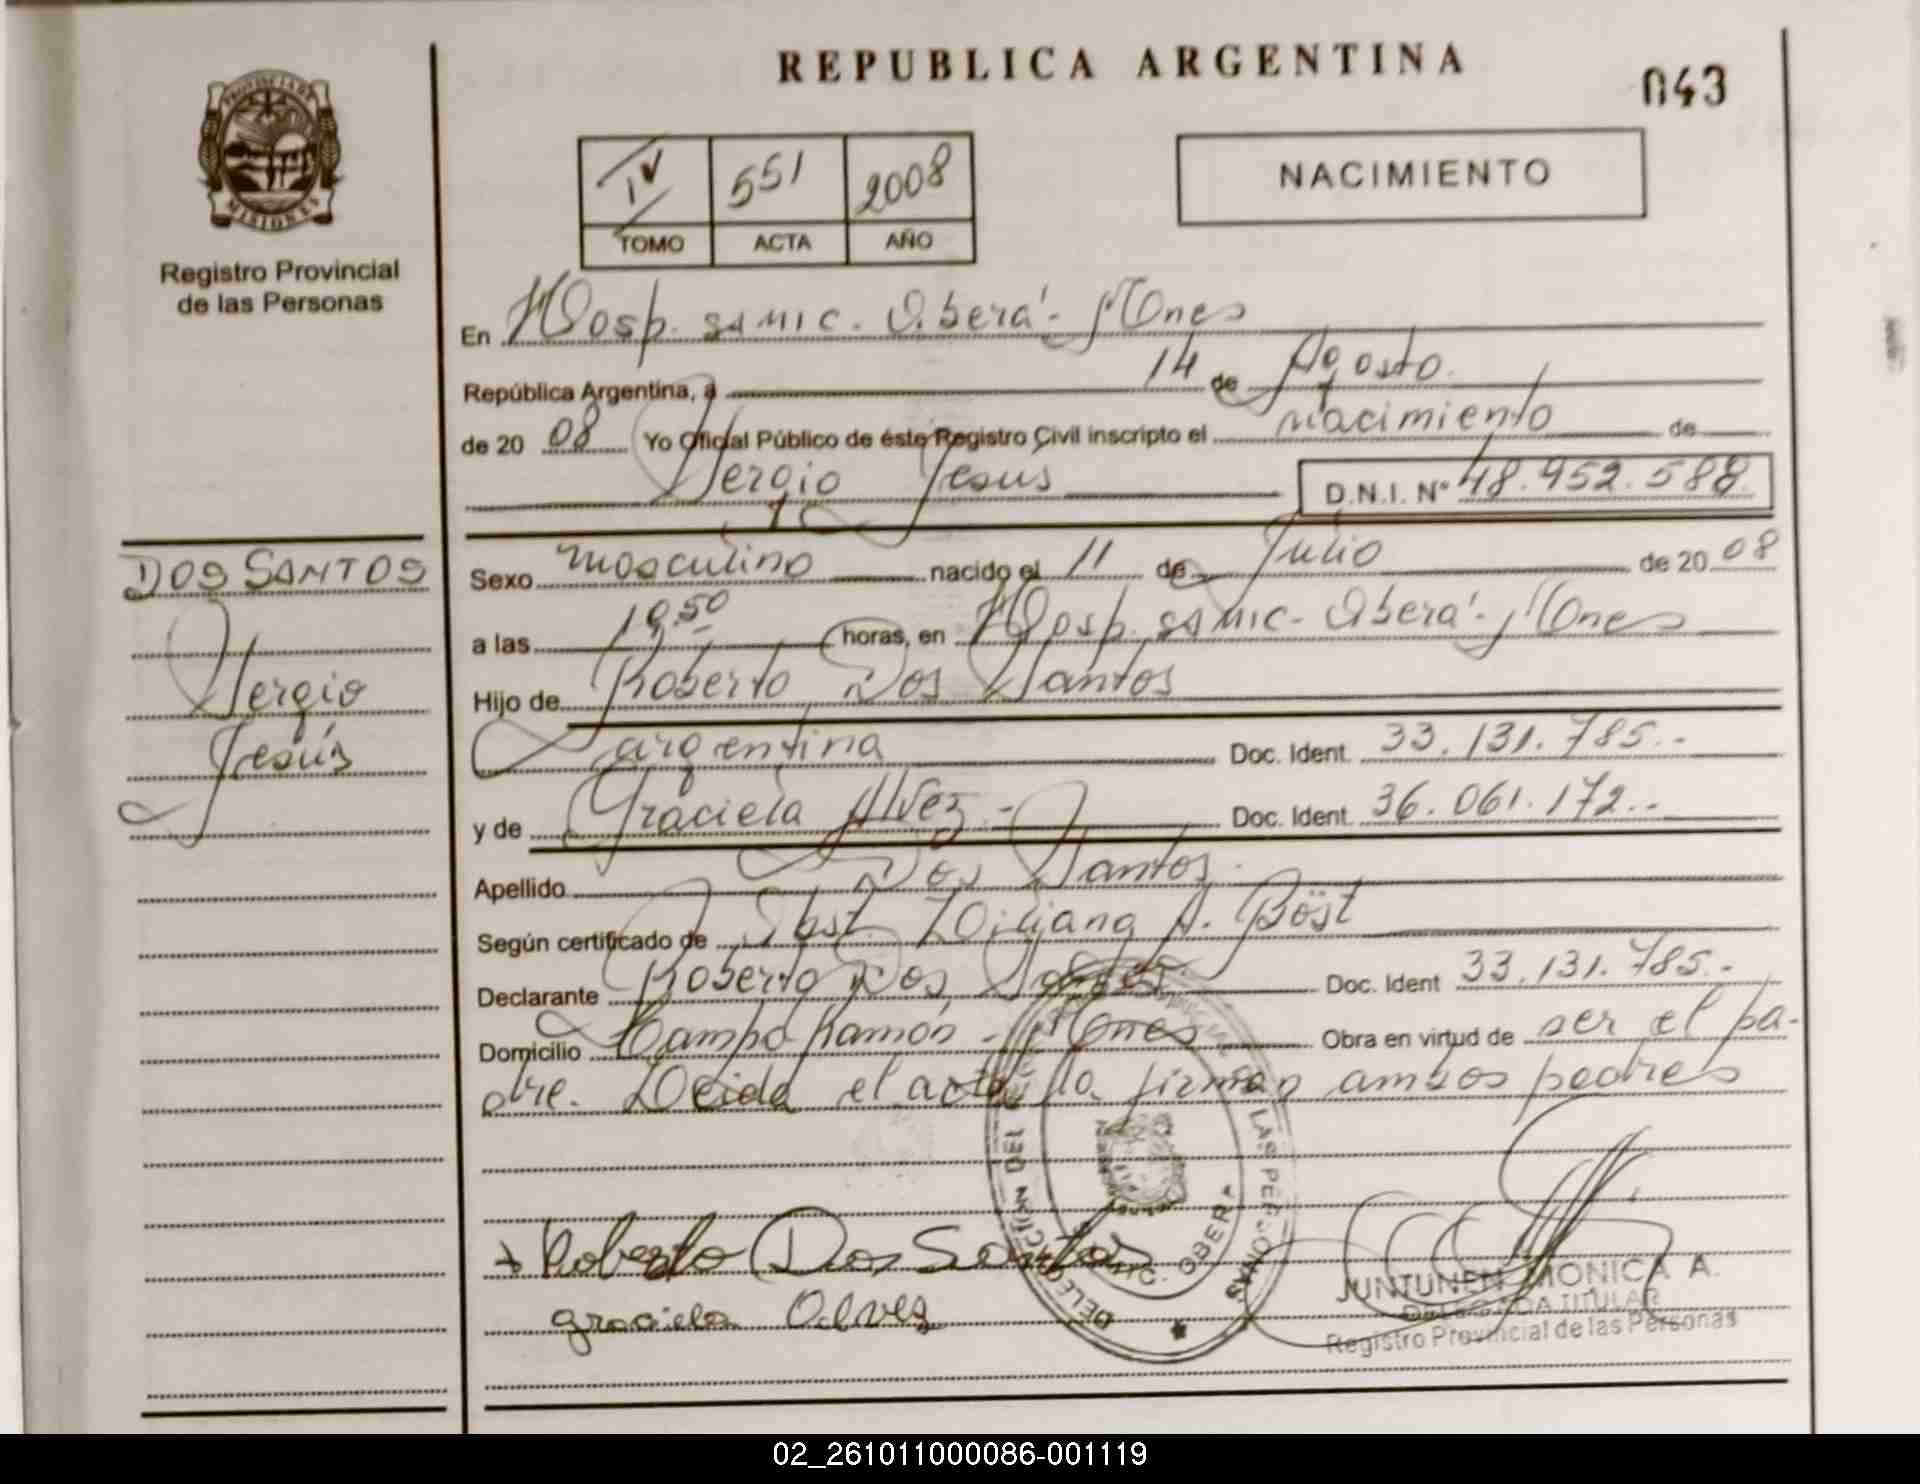 REPUBLICA ARGENTINA
043
PROVINCIA DE
MISIONES
Registro Provincial
de las Personas
IV 551 2008
TOMO ACTA AÑO
NACIMIENTO
En Hosp. samic. Oberá - Mones
República Argentina, a 14 de Agosto.
de 20 08 Yo Oficial Público de éste Registro Civil inscripto el nacimiento de
Sergio Jesús D.N.I. Nº 48.952.588
DOS SANTOS
Sergio
Jesús
Sexo masculino nacido el 11 de Julio de 20 08
a las 19,50 horas, en Hosp. samic - Oberá - Mones
Hijo de Roberto Dos Santos
argentina Doc. Ident. 33.131.785.-
y de Graciela Alvez - Doc. Ident. 36.061.172.-
Apellido Dos Santos
Según certificado de Obst. Liliana A. Böst
Declarante Roberto Dos Santos Doc. Ident 33.131.785.-
Domicilio Campo Ramón - Mones Obra en virtud de ser el pa-
dre. Leida el acta la firman ambos padres
Roberto Dos Santos
graciela Alvez
DELEGACION DEL LAS PERSONAS
OBERA
JUNTUNEN MONICA A.
DELEGADA TITULAR
Registro Provincial de las Personas
02_261011000086-001119